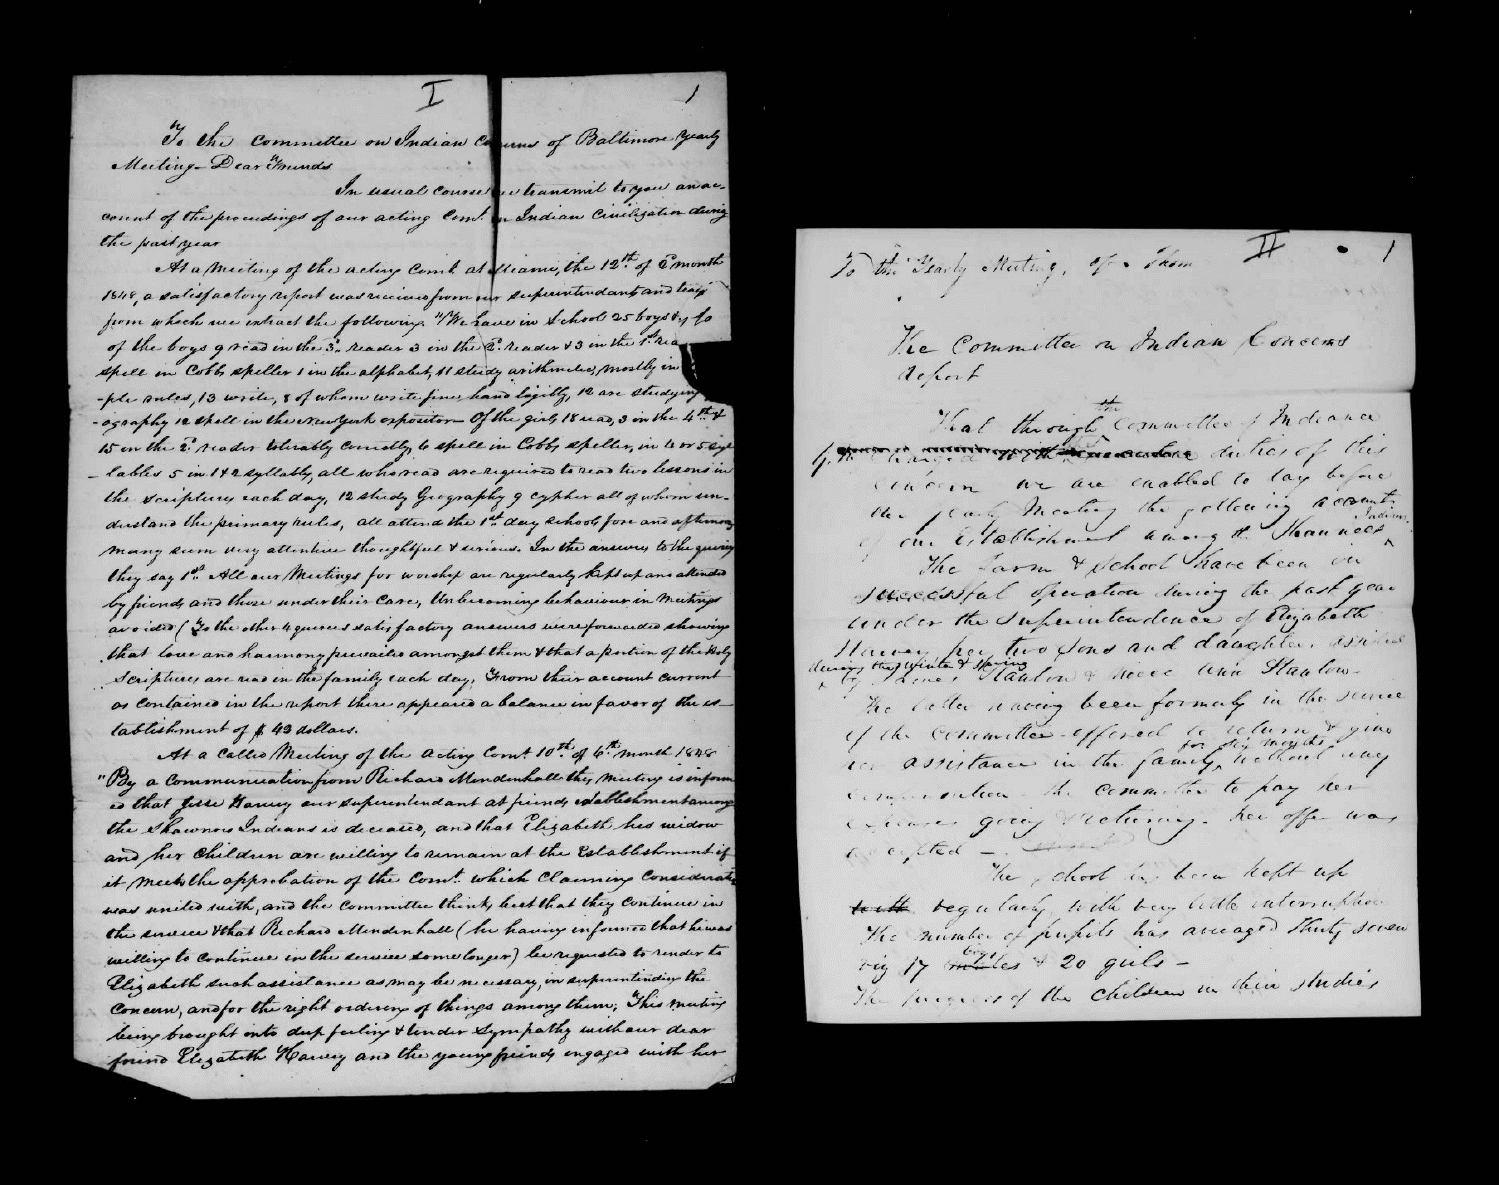 I
1
To the committee on Indian Concerns of Baltimore Yearly
Meeting - Dear Friends
In usual course we transmit to you an ac-
count of the proceedings of our acting Comt. on Indian Civilization during
the past year
At a Meeting of the acting Comt. at Miami, the 12th. of 2 month
1848, a satisfactory report was received from our superintendants and
from which we extract the following "We have in School 25 boys &
of the boys 9 read in the 3d. reader 3 in the 2d. reader & 3 in the 1st.
spell in Cobbs speller 1 in the alphabet, 11 study arithmetic, mostly in
-ple rules, 13 write, 8 of whom write fine hand legibly, 12 are studying
-ography 12 spell in the New York expositor - Of the girls 18 read, 3 in the 4th &
15 in the 2d. reader tolerably correctly, 6 spell in Cobbs speller, in 4 or 5 syl
-lables 5 in 1 & 2 syllables, all who read are required to read two lessons in
the scriptures each day, 12 study Geography 9 cypher all of whom un-
derstand the primary rules, all attend the 1st. day school, fore and afternoon
many seem very attentive thoughtful & serious. In the answers to the queries
they say 1st. All our Meetings for worship are regularly kept up and attended
by friends and those under their care, Unbecoming behaviour in Meetings
avoided (To the other 4 queries satisfactory answers were forwarded showing
that love and harmony prevailed amongst them & that a portion of the Holy
Scriptures are read in the family each day, From their account current
as contained in the report there appeared a balance in favor of the es-
tablishment of $ 43 dollars.
At a called Meeting of the Acting Comt. 10th. of 6th. month 1848
"By a communication from Richard Mendenhall this meeting is inform
ed that Jesse Harvey our superintendant at friends establishment among
the Shawnee Indians is deceased, and that Elizabeth his widow
and her children are willing to remain at the Establishment if
it meets the approbation of the Comt. which claiming consideration
was united with, and the committee think best that they continue in
the service & that Richard Mendenhall (he having informed that he was
willing to continue in the service some longer) be requested to render to
Elizabeth such assistance as may be necessary, in superintending the
concern, and for the right ordering of things among them; This meeting
being brought into deep feeling & tender sympathy with our dear
friend Elizabeth Harvey and the young friends engaged with her
II
1
To the Yearly Meeting, of
The Committee on Indian Concerns
report
That through the Committee of Indiana
charged with duties of this
concern we are enabled to lay before
the yearly Meeting the following accounts
of our Establishment among the Shawnees Indians
The Farm & School have been in
successful operation during the past year
under the superintendence of Elizabeth
Harvey her two sons and daughter, assisted
during the winter & spring
by Stanton & Ann Stanton
The latter having been formerly in the service
of the committee offered to return & give
her assistance in the family for six months without any
the committee to pay her
expenses going & returning - her offer was
accepted -
The school has been kept up
with regularly, with very little interruption
The number of pupils has averaged thirty seven
viz 17 boys & 20 girls -
The progress of the children in their studies